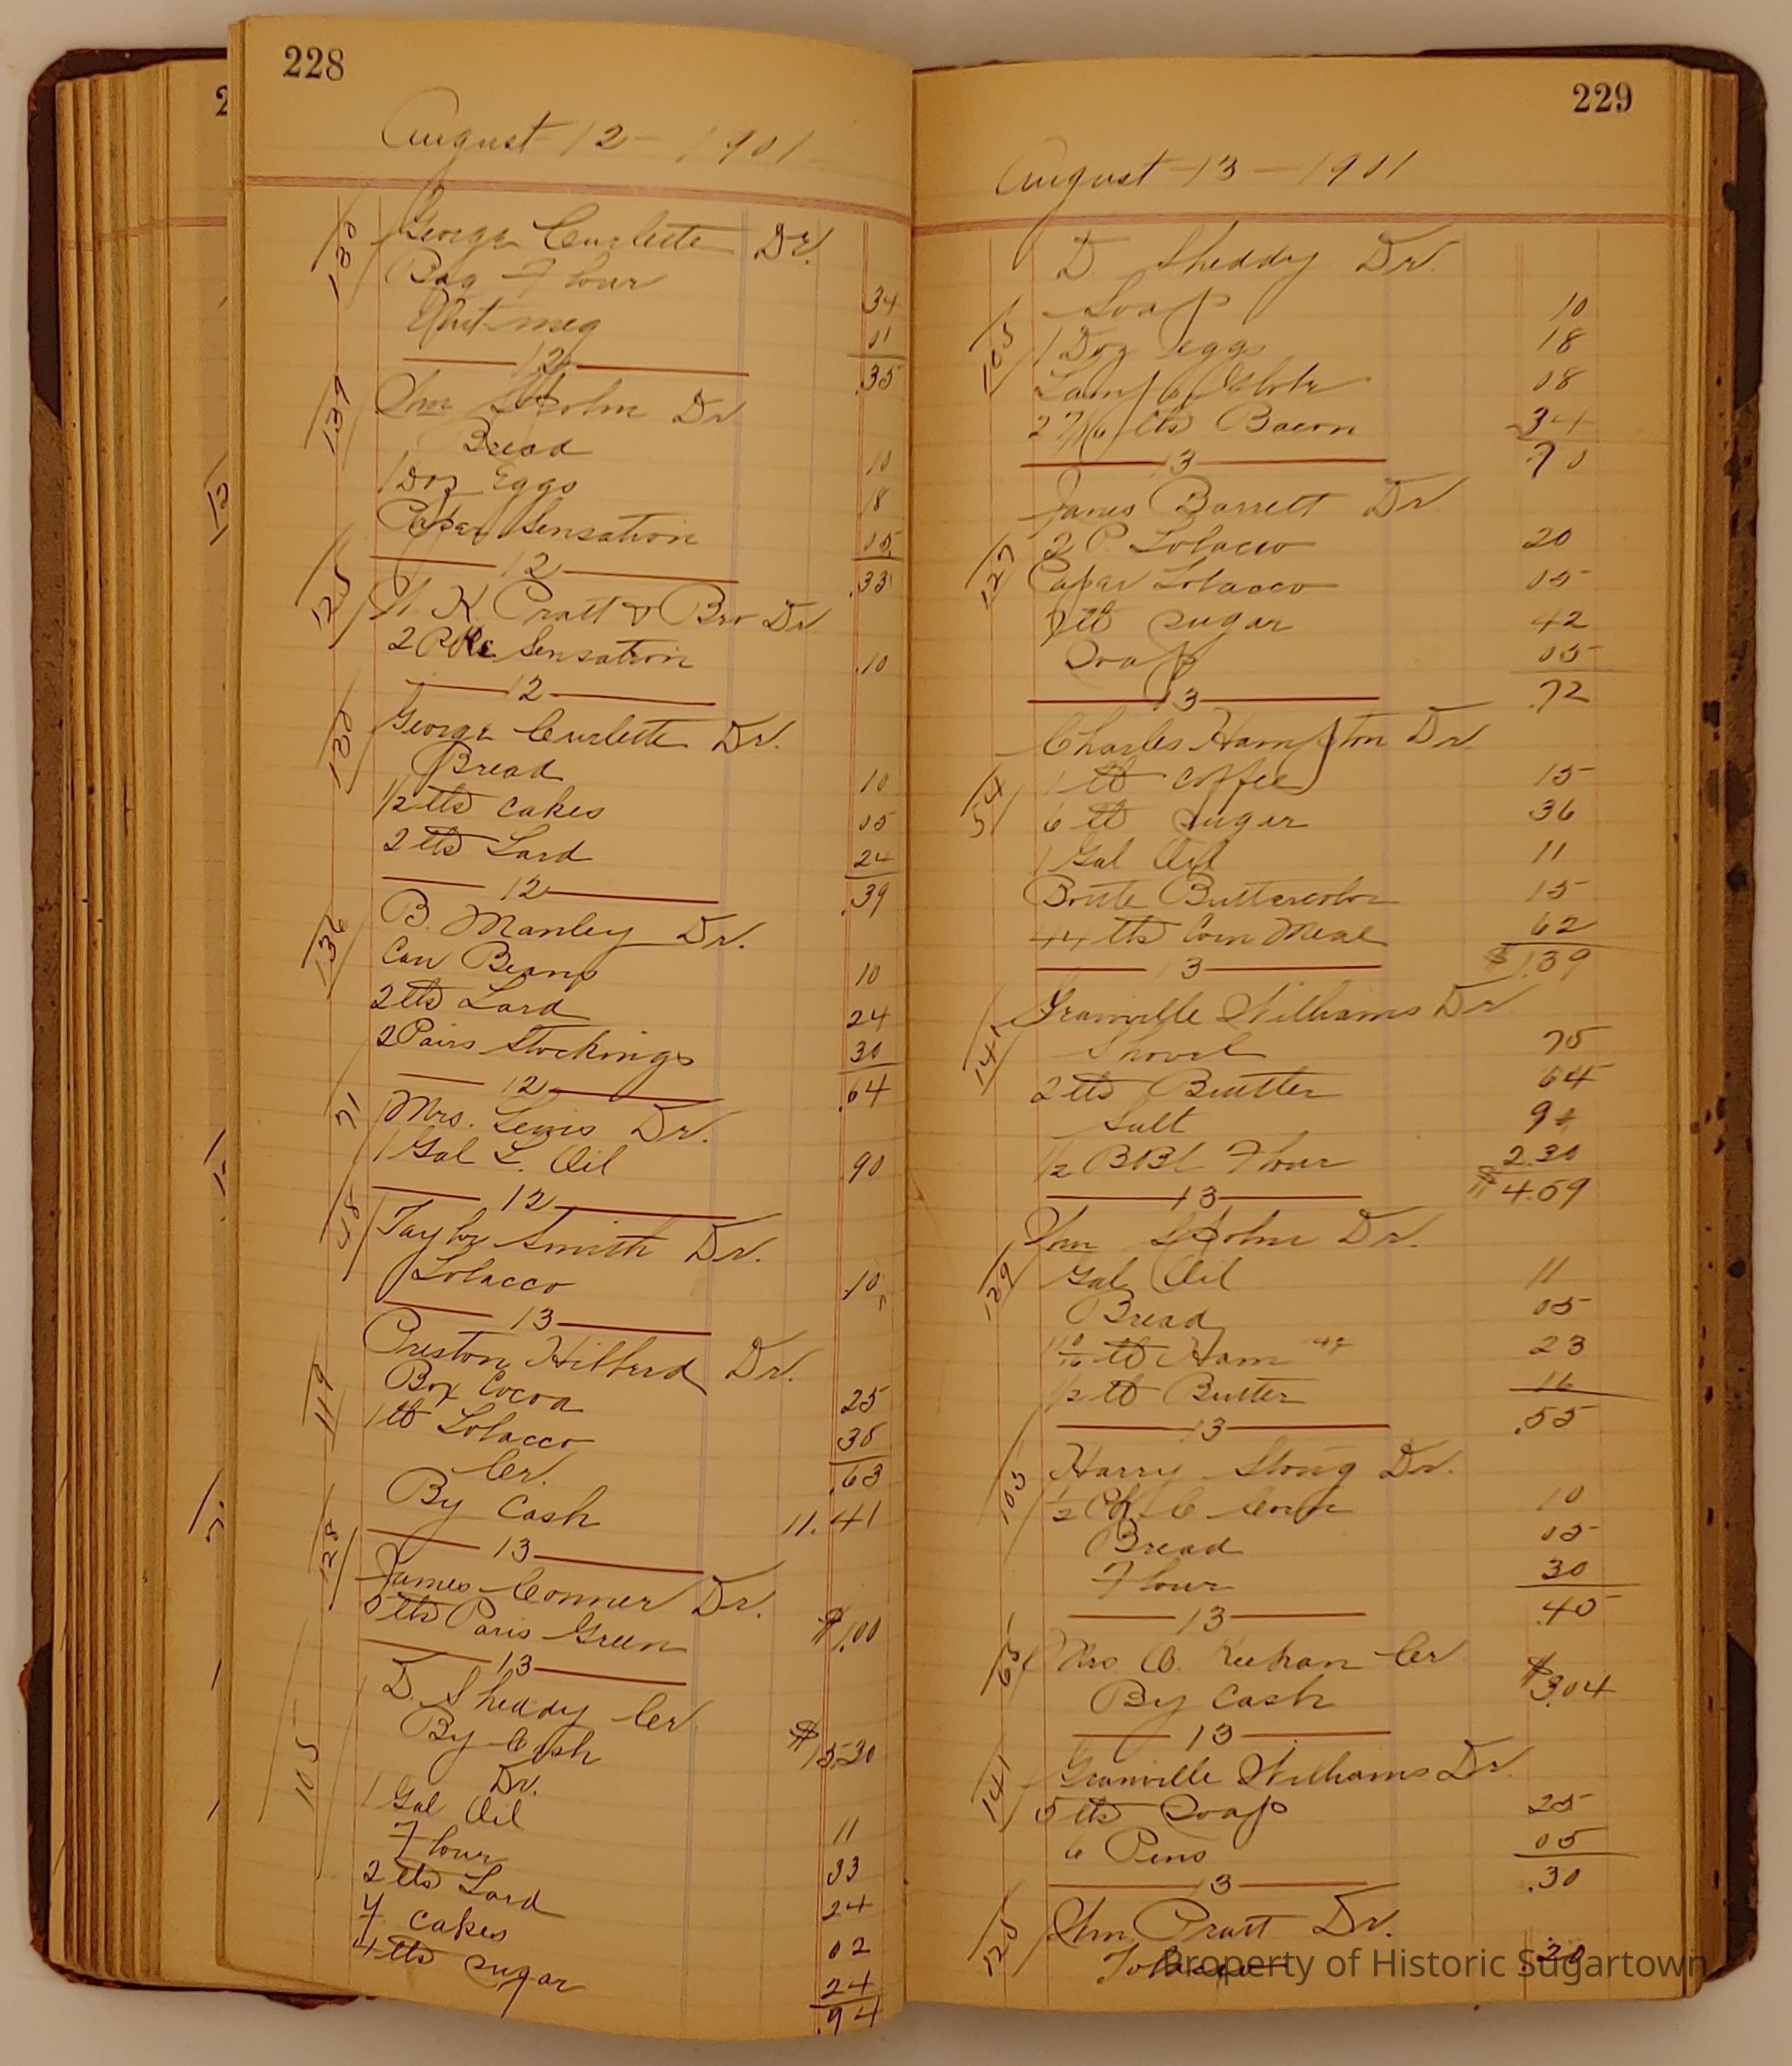 228
August 12 - 1901
George Curlette Dr.
Bag Flour 34
Nutmeg 01
.35
12
Wm Dr
139
Bread 10
1 Doz Eggs 18
Paper Sensation 05
.33
12
125
K Pratt & Bro Dr
2 Sensation .10
12
George Curlette Dr.
Bread 10
1/2 lbs Cakes 05
2 lbs Lard 24
.39
12
136
B. Manley Dr.
Can Beans 10
2 lbs Lard 24
2 Pairs Stockings 30
.64
12
71
Mrs. Lewis Dr.
1 Gal L. Oil .90
12
48
Taylor Smith Dr.
Tobacco .10
13
119
Preston Hibberd Dr.
Box Cocoa 25
1 lb Tobacco 38
Cr. .63
By Cash 11.41
13
128
James Conner Dr.
5 lbs Paris Green $1.00
13
105
D. Sheddy Cr.
By Cash $15.30
Dr.
1 Gal Oil 11
Flour 33
2 lbs Lard 24
Y. Cakes 02
4 lbs Sugar 24
.94
229
August 13 - 1901
D. Sheddy Dr.
105
Soap 10
1 Doz eggs 18
Lamp Globe 08
2 7/16 lbs Bacon 34
.70
13
James Barrett Dr
127
2 P. Tobacco 20
Paper Tobacco 05
7 lb Sugar 42
Soap 05
.72
13
Charles Hampton Dr.
54
1 lb Coffee 15
6 lb Sugar 36
1 Gal Oil 11
Bottle Buttercolor 15
44 lbs Corn Meal 62
$1.39
13
Granville Williams Dr
141
Shovel 75
2 lbs Butter 64
Salt 9
1/2 BBl Flour 2.30
$4.59
13
Wm Dr.
139
Gal Oil 11
Bread 05
1 10/16 lb Ham 23
1/2 lb Butter 16
.55
13
103
Harry Stong Dr.
1/2 Pk C Corn 10
Bread 05
Flour 30
.45
13
65
Mrs O. Keehan Cr
By Cash $3.04
13
141
Granville Williams Dr
5 lbs Soap 25
6 Pens 05
.30
13
125
Wm Pratt Dr.
Tobacco .20
Property of Historic Sugartown